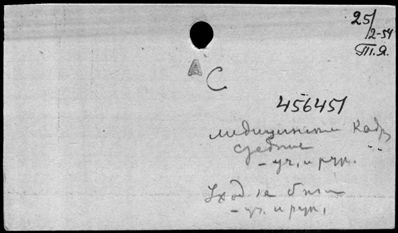 25/2-54
Т.Я.
А
С
456451
медицинские кадр
средние
- уч. и рук.
Уход за бол
- уч. и рук.